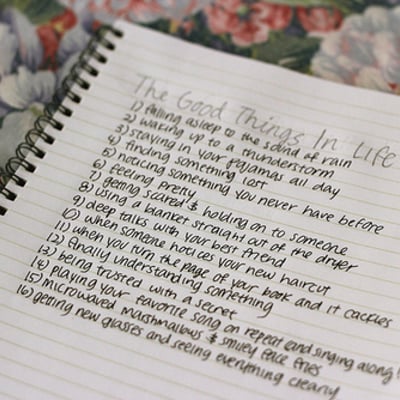 The Good Things In Life
1) falling asleep to the sound of rain
2) waking up to a thunderstorm
3) staying in your pajamas all day
4) finding something lost
5) noticing something you never have before
6) feeling pretty
7) getting scared & holding on to someone
8) using a blanket straight out of the dryer
9) deep talks with your best friend
10) when someone notices your new haircut
11) when you turn the page of your book and it cackles
12) finally understanding something
13) being trusted with a secret
14) playing your favorite song on repeat (and singing along!)
15) microwaved marshmallows & smiley face fries
16) getting new glasses and seeing everything clearly